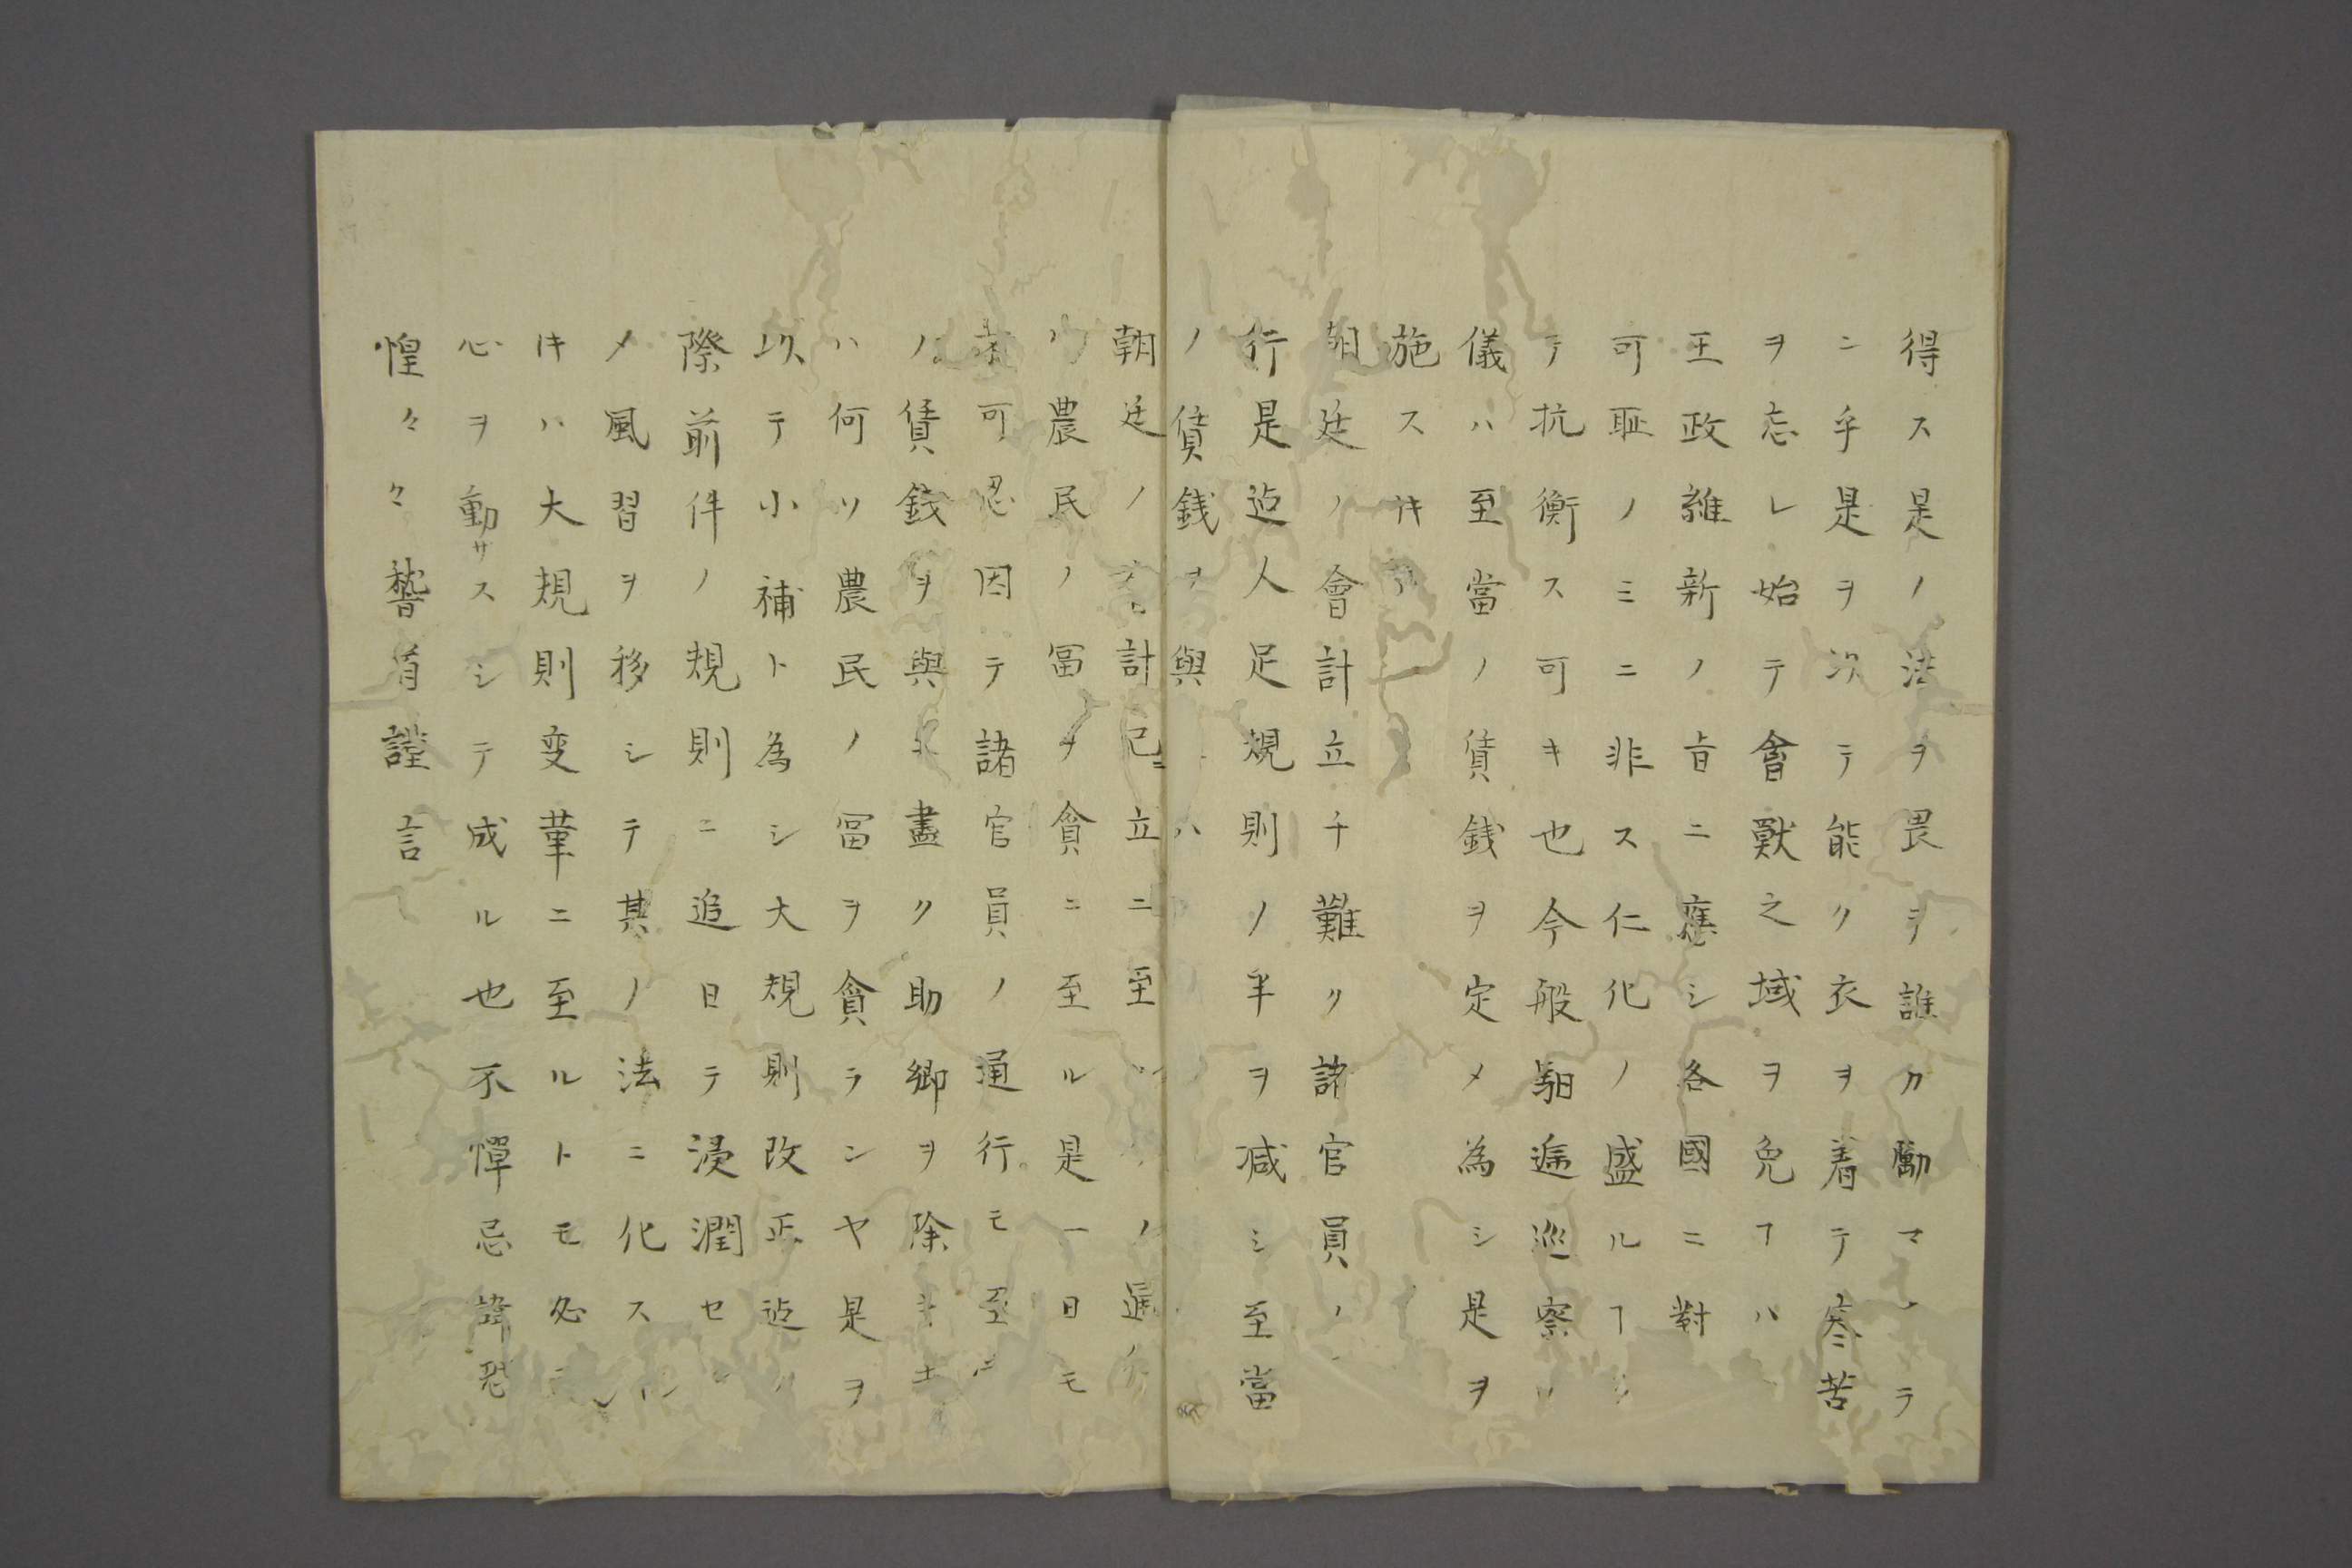 得ス是ノ法ヲ畏ヲ誰カ勵マ ラ
ン乎是ヲ次テ能ク衣ヲ着テ寒苦
ヲ忘レ始テ會獸之域ヲ免ヿハ
王政維新ノ旨ニ應シ各國ニ對
可耻ノミニ非ス仁化ノ盛ルヿ
テ抗衡ス可キ也今般駅逓巡察
儀ハ至當ノ賃銭ヲ定メ為シ是ヲ
施スキ
朝廷ノ會計立チ難ク諸官員ノ
行是迠人足規則ノ半ヲ減シ至當
ノ賃銭ヲ與 ハ
朝廷ノ 計已ニ立ニ至 ノ逓
農民ノ冨ヲ貪ニ至ル是一日モ
可忍因テ諸官員ノ通行モ至
ノ賃銭ヲ與 盡ク助郷ヲ除
ハ何ソ農民ノ冨ヲ貪ランヤ是ヲ
以テ小補ト為シ大規則改正迠
際前件ノ規則ニ追日テ浸潤セ
メ風習ヲ移シテ其ノ法ニ化ス
キハ大規則変革ニ至ルトモ必
心ヲ動サスシテ成ル也不憚忌諱恐
惶々々謷首謹言